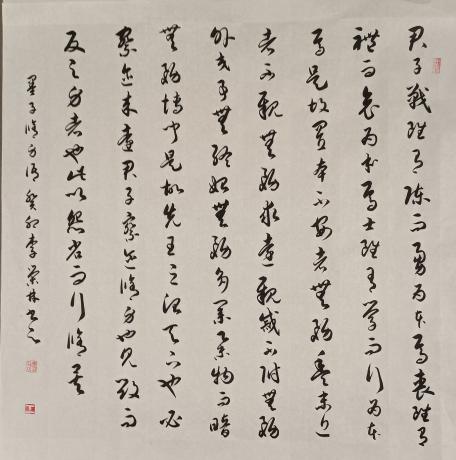 君子戰雖有陳而勇為本焉喪雖有
禮而哀為本焉士雖有學而行為本
焉是故置本不安者無務豐末近
者不親無務求遠親戚不附無務
外交事無終始無務多業舉物而暗
無務博聞是故先王之治天下也必
察迩來遠君子察迩脩身也見毀而
反之身者也此以怨省而行脩矣
墨子脩身 癸卯李榮林書